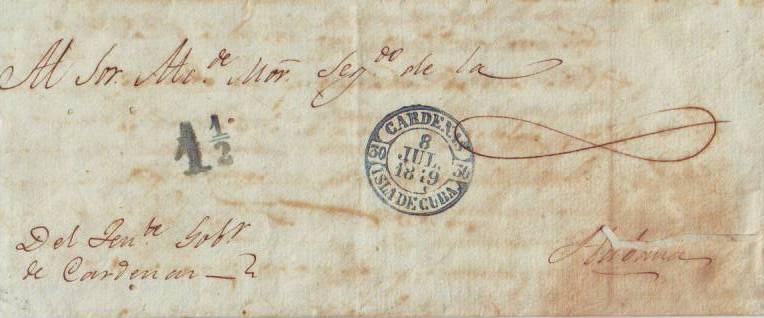 Al Sor. Alc.de Mor. Seg.do de la
1 1/2
CARDENAS
8
JUL
1849
30 30
ISLA DE CUBA
Del Ten.te Gob.r
de Cardenas
Habana